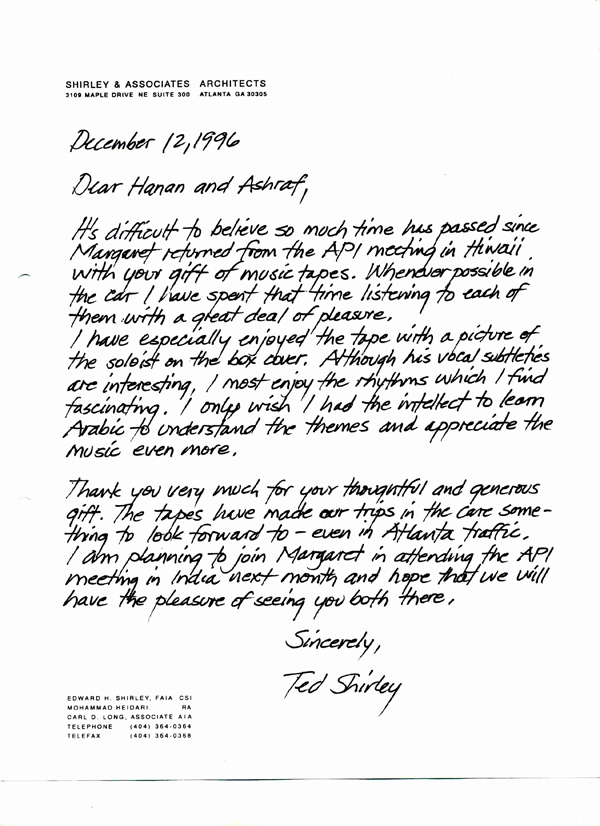 SHIRLEY & ASSOCIATES ARCHITECTS
3109 MAPLE DRIVE NE SUITE 300 ATLANTA GA 30305
December 12, 1996
Dear Hanan and Ashraf,
It's difficult to believe so much time has passed since
Margaret returned from the API meeting in Hiwaii
with your gift of music tapes. Whenever possible in
the car I have spent that time listening to each of
them with a great deal of pleasure.
I have especially enjoyed the tape with a picture of
the soloist on the box cover. Although his vocal subtleties
are interesting, I most enjoy the rhythms which I find
fascinating. I only wish I had the intellect to learn
Arabic to understand the themes and appreciate the
music even more.
Thank you very much for your thoughtful and generous
gift. The tapes have made our trips in the care some-
thing to look forward to - even in Atlanta traffic.
I am planning to join Margaret in attending the API
meeting in India next month and hope that we will
have the pleasure of seeing you both there.
Sincerely,
Ted Shirley
EDWARD H. SHIRLEY, FAIA CSI
MOHAMMAD HEIDARI RA
CARL D. LONG, ASSOCIATE AIA
TELEPHONE (404) 364-0364
TELEFAX (404) 364-0368